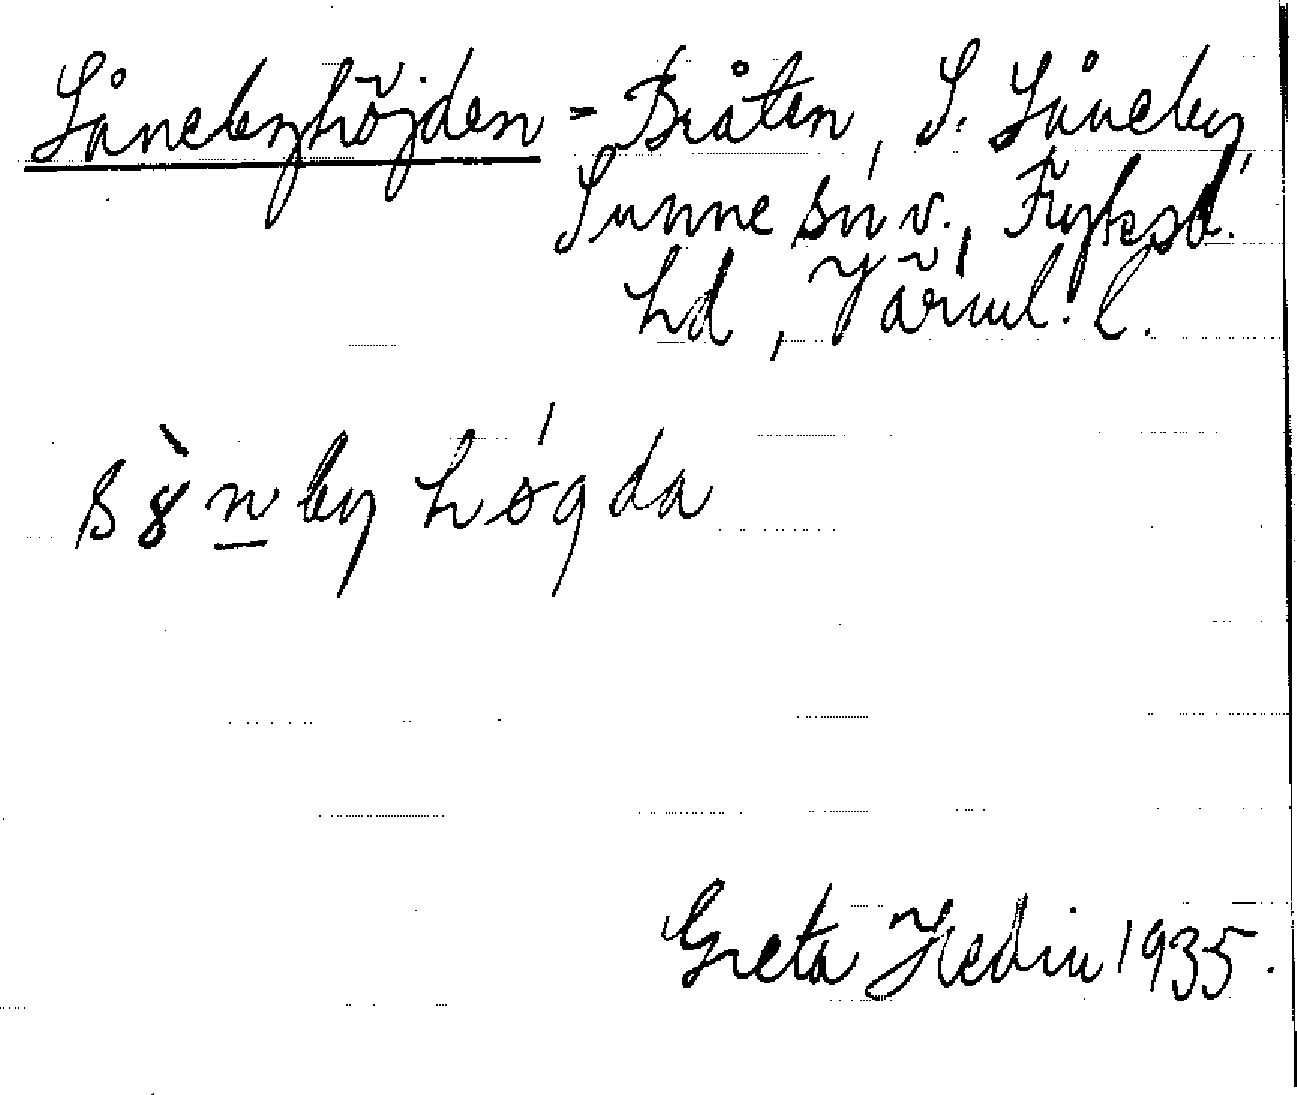 Sånebyhöjden = Bråten, S. Såneby,
Sunne sn v., Fryksd.
hd, Värml. l.
s8̀n̲by hǿgda
Greta Hedin 1935.